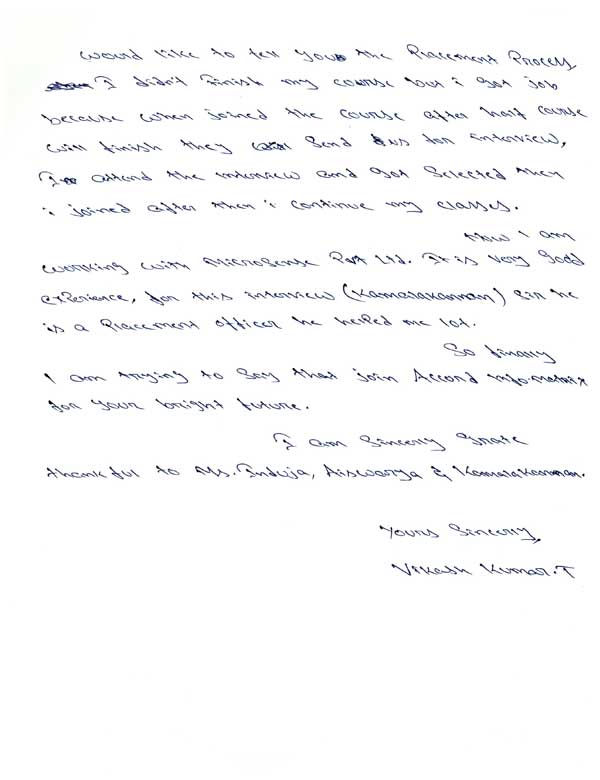 would like to tell you the Placement Process
I didn't finish my course but i got job
because when joined the course after half course
will finish they will send us for interview,
I attend the interview and got selected then
i joined after then i continue my classes.
Now I am
working with MicroSense Pvt Ltd. It is very good
experience, for this interview (Kamalakannan) Sir he
is a Placement officer he helped me lot.
So finally
I am trying to say that join Accord info matrix
for your bright future.
I am sincerly
thankful to Ms. Induja, Aiswarya & Kamalakannan.
Yours Sincerly,
Vikash Kumar.T